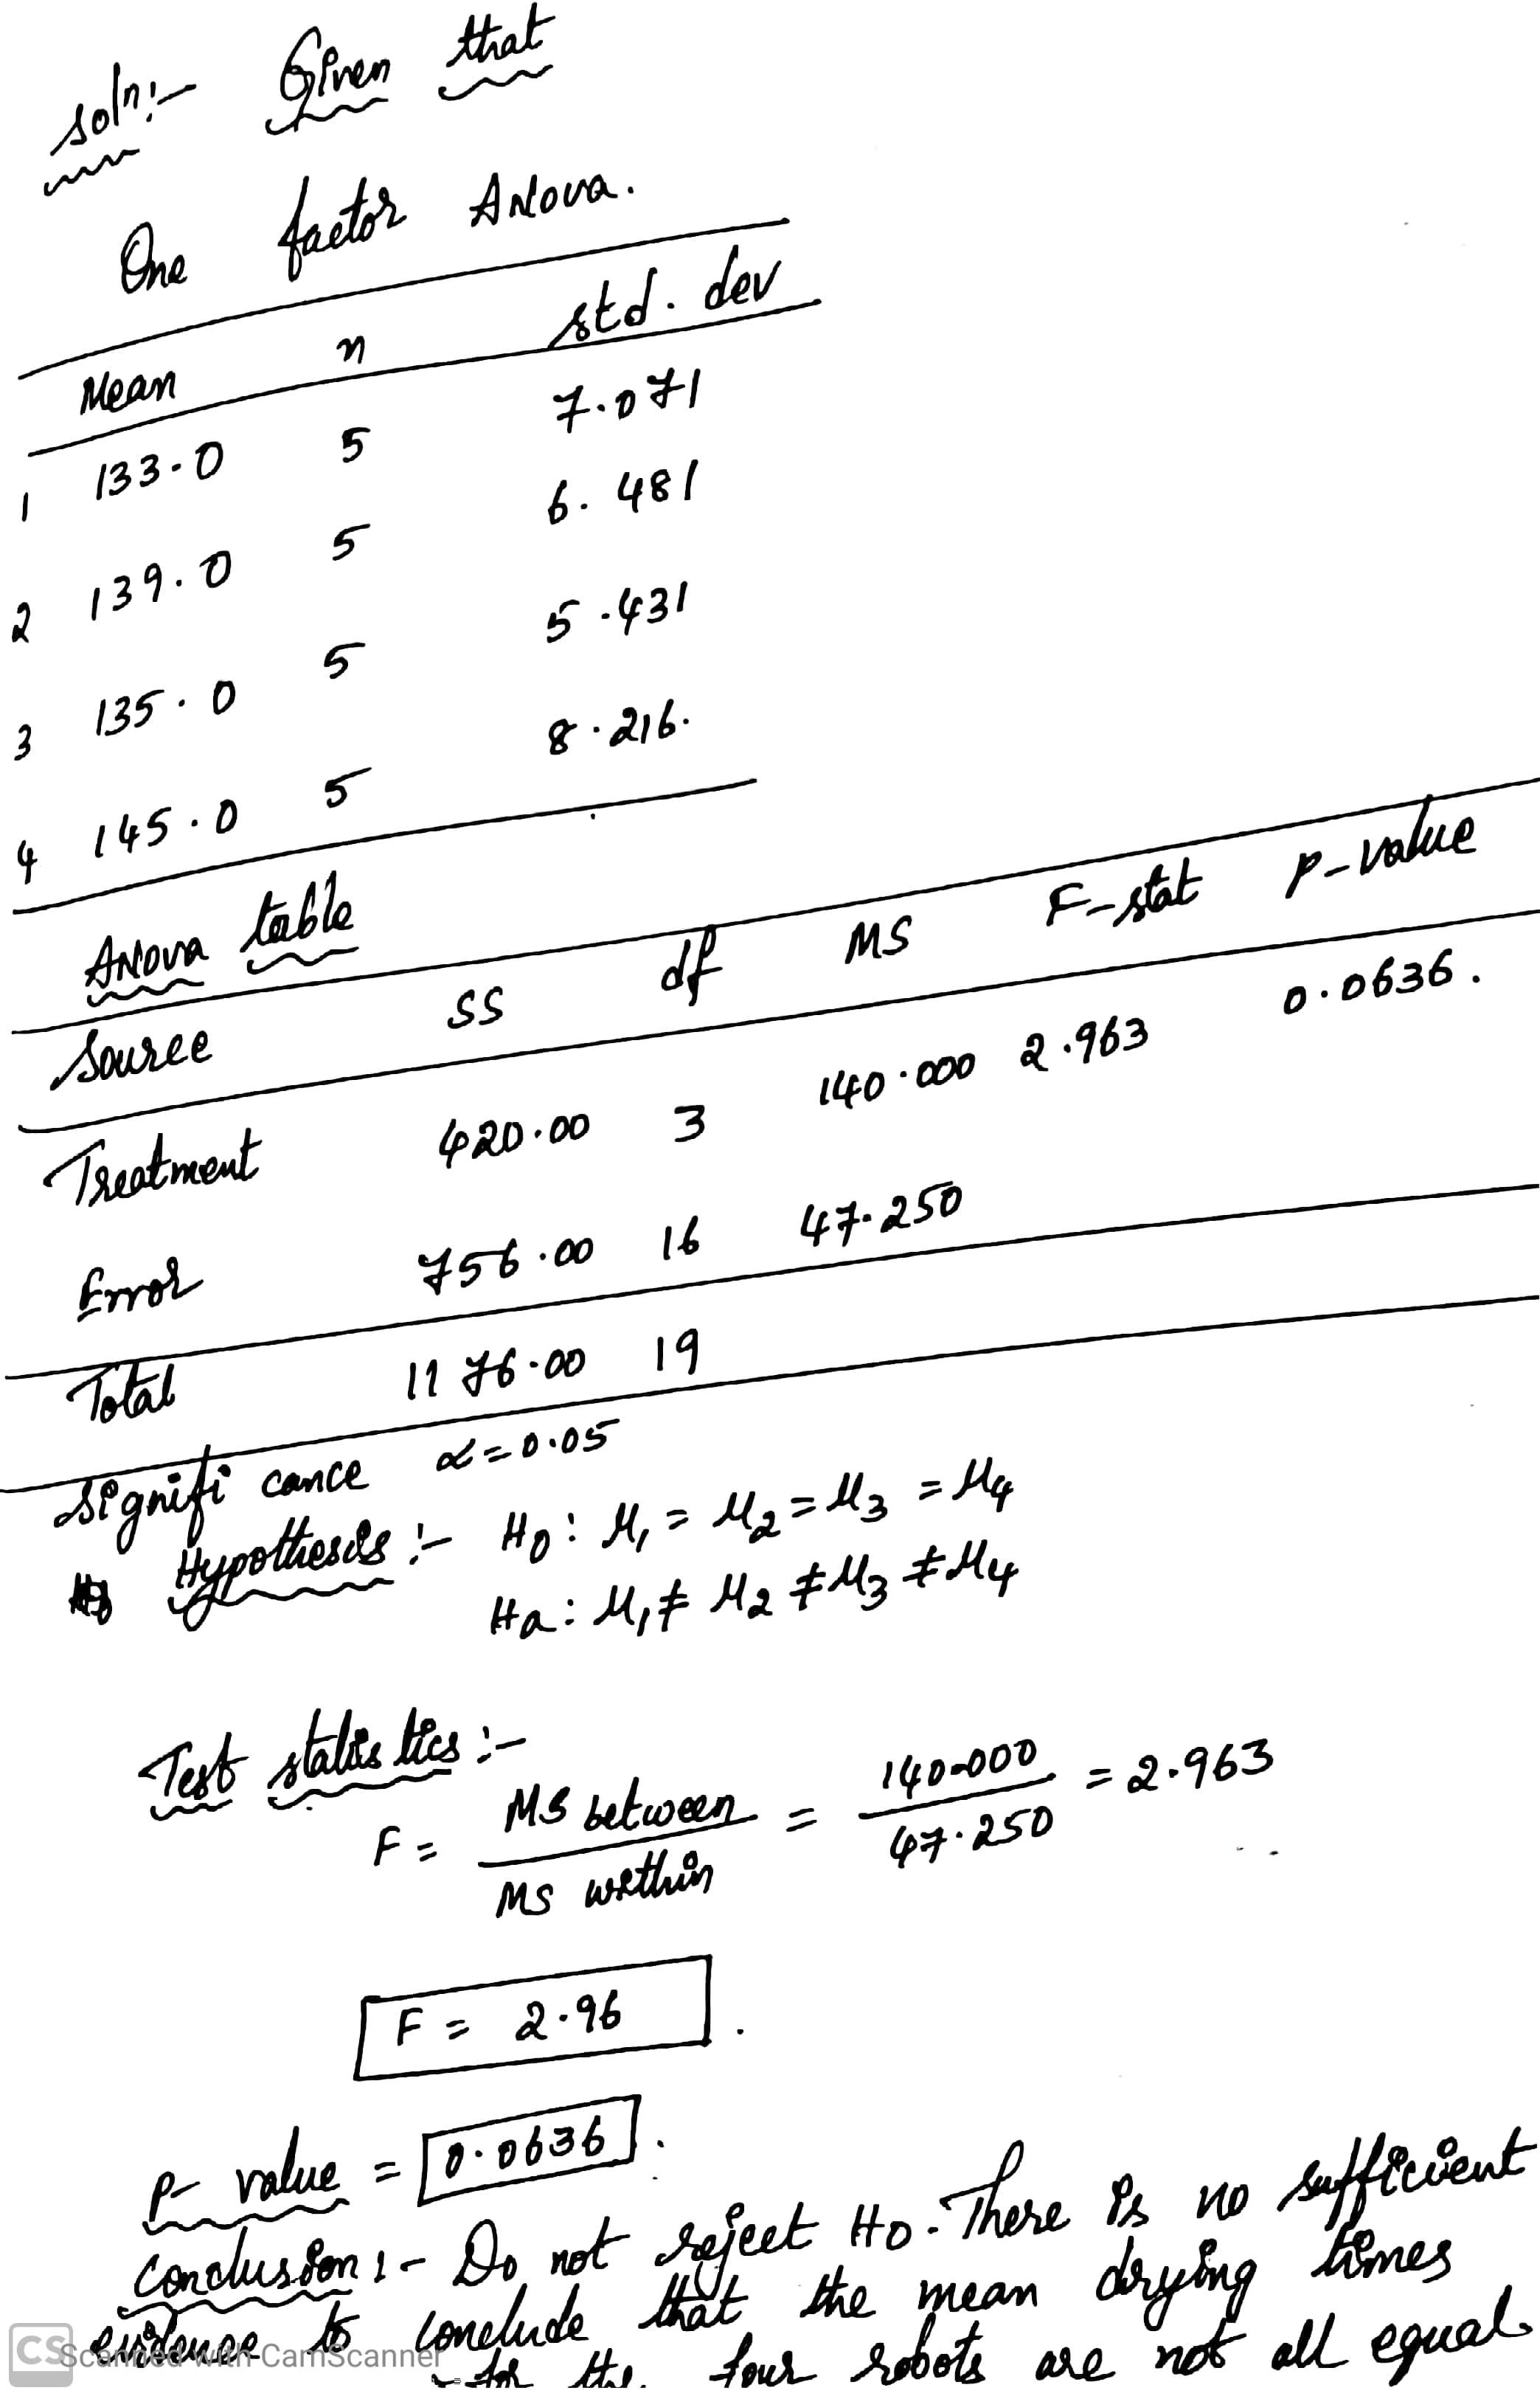 soln:- Given that
One factor ANOVA.
Mean n std. dev
1 133.0 5 7.071
2 139.0 5 6.481
3 135.0 5 5.431
4 145.0 5 8.216.
ANOVA table
Source SS df MS F-stat P-value
Treatment 420.00 3 140.000 2.963 0.0636.
Error 756.00 16 47.250
Total 1176.00 19
Significance α=0.05
Hypothesis :- H0: μ1 = μ2 = μ3 = μ4
Ha: μ1 ≠ μ2 ≠ μ3 ≠ μ4
Test statistics :-
F = MS between / MS within = 140.000 / 47.250 = 2.963
F = 2.96.
P-value = 0.0636.
Conclusion :- Do not reject H0. There is no sufficient
evidence to conclude that the mean drying times
for the four robots are not all equal.
CS Scanned with CamScanner